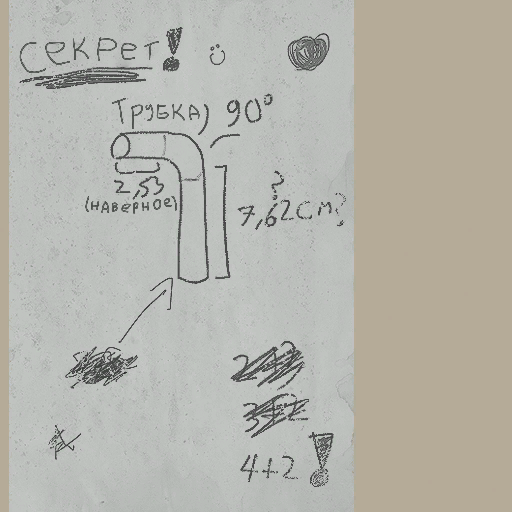 СЕКРЕТ!
ТРУБКА) 90°
2,53
(НАВЕРНОЕ)
?
7,62СМ?
4+2!